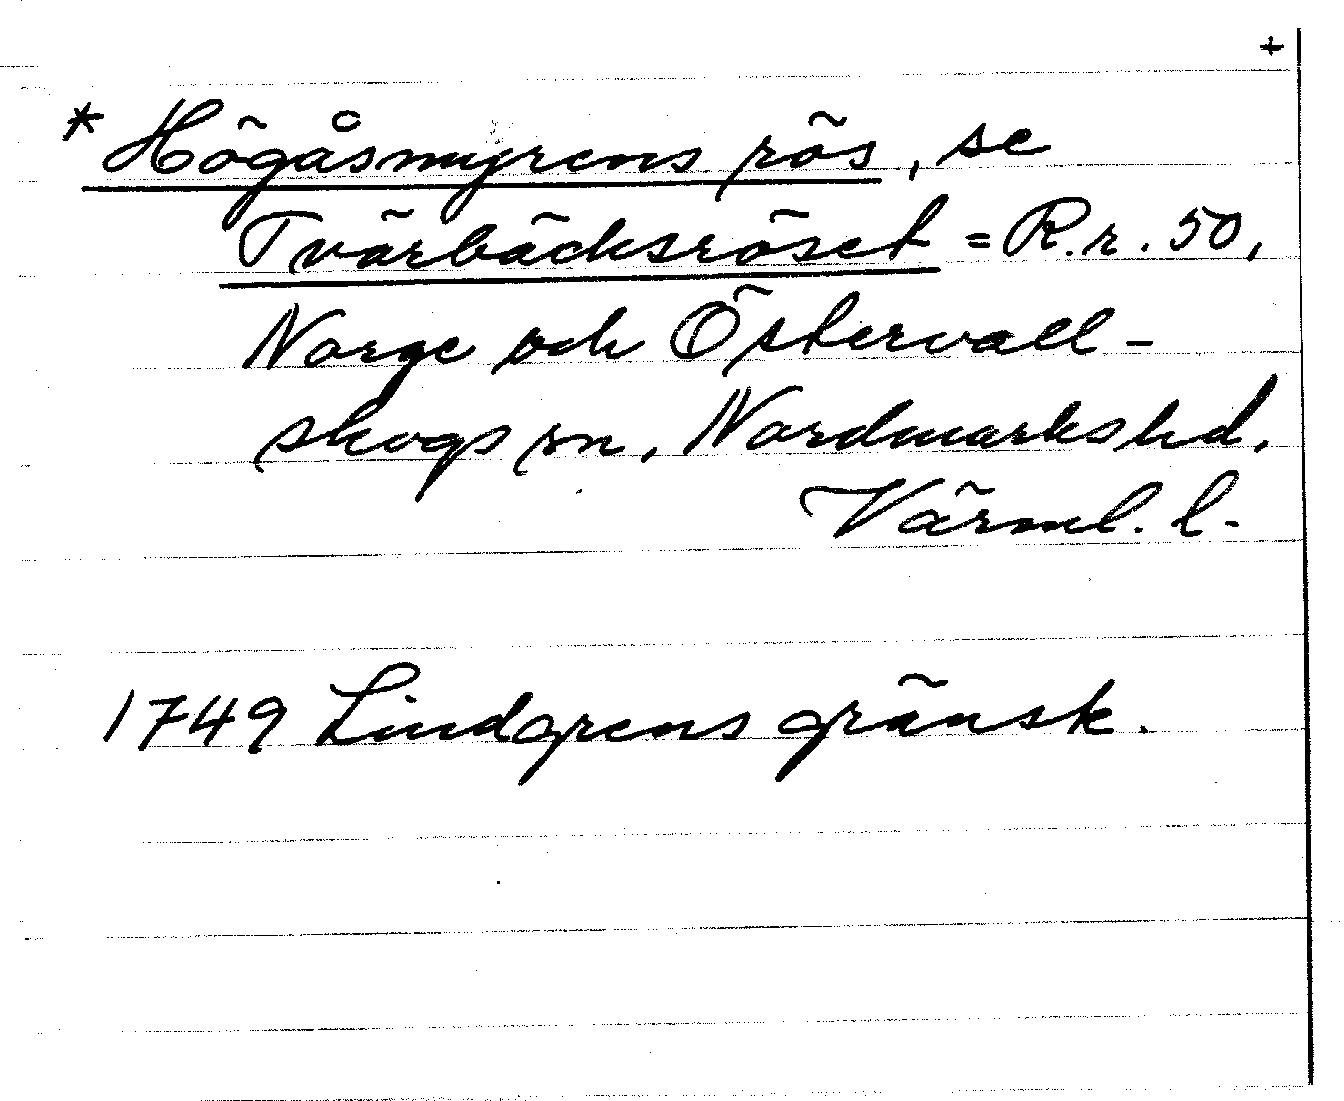 +
* Högåsmyrens rös, se
Tvärbäcksröset = R.r. 50,
Norge och Östervall-
skogs sn, Nordmarks hd,
Värml. l.
1749 Lindgrens gränsk.